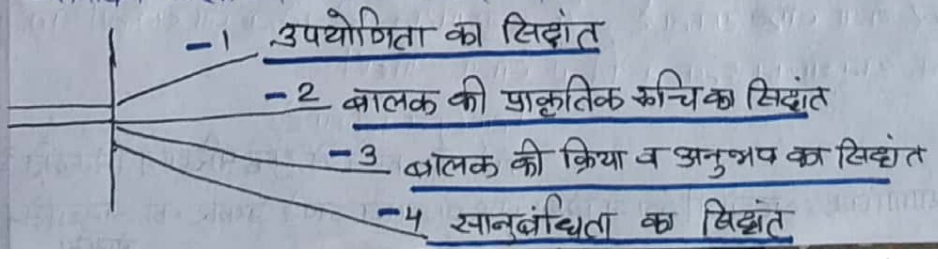 -1 उपयोगिता का सिद्धांत
-2 बालक की प्राकृतिक रुचि का सिद्धांत
-3 बालक की क्रिया व अनुभव का सिद्धांत
-4 सानुबंधिता का सिद्धांत